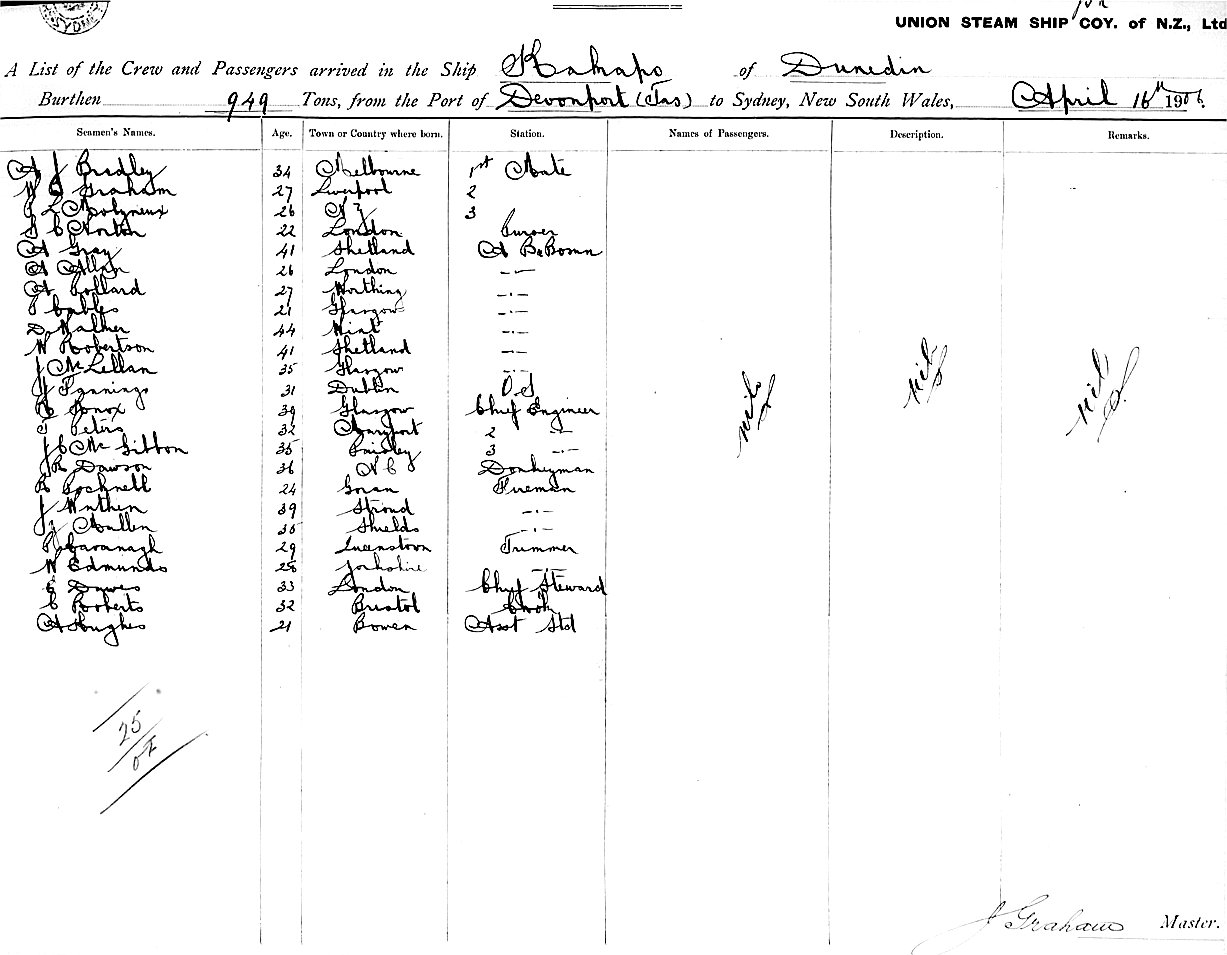 SYDNEY
for
UNION STEAM SHIP COY. of N.Z., Ltd
A List of the Crew and Passengers arrived in the Ship Kakapo of Dunedin
Burthen 949 Tons, from the Port of Devonport (Tas) to Sydney, New South Wales, April 16th 1906.
Seamen's Names. Age. Town or Country where born. Station. Names of Passengers. Description. Remarks.
A J Bradley 34 Melbourne 1st Mate
Graham 27 Liverpool 2
L Molyneux 26 N Z 3
C Norton 22 London Purser
A Gray 41 Shetland A B & Bosun
A Allan 26 London —"—
A Pollard 27 Worthing —"—
Cables 21 Glasgow —"—
D Walker 44 —"—
W Robertson 41 Shetland —"—
J McLellan 35 Glasgow —"—
J Jennings 31 Dublin O S
Knox 39 Glasgow Chief Engineer
Peters 32 Maryport 2 —"—
J C McGibbon 35 Paisley 3 —"—
J R Dawson 36 Donkeyman
R 24 Fireman
J 39 Stroud —"—
J Mullen 35 Shields —"—
Cavanagh 29 Queenstown Trimmer
W Edmunds 28 Yorkshire —"—
Dawes 33 London Chief Steward
C Roberts 32 Bristol Cook
A Hughes 21 Bowen Asst Std
nil nil nil
25
J Graham Master.